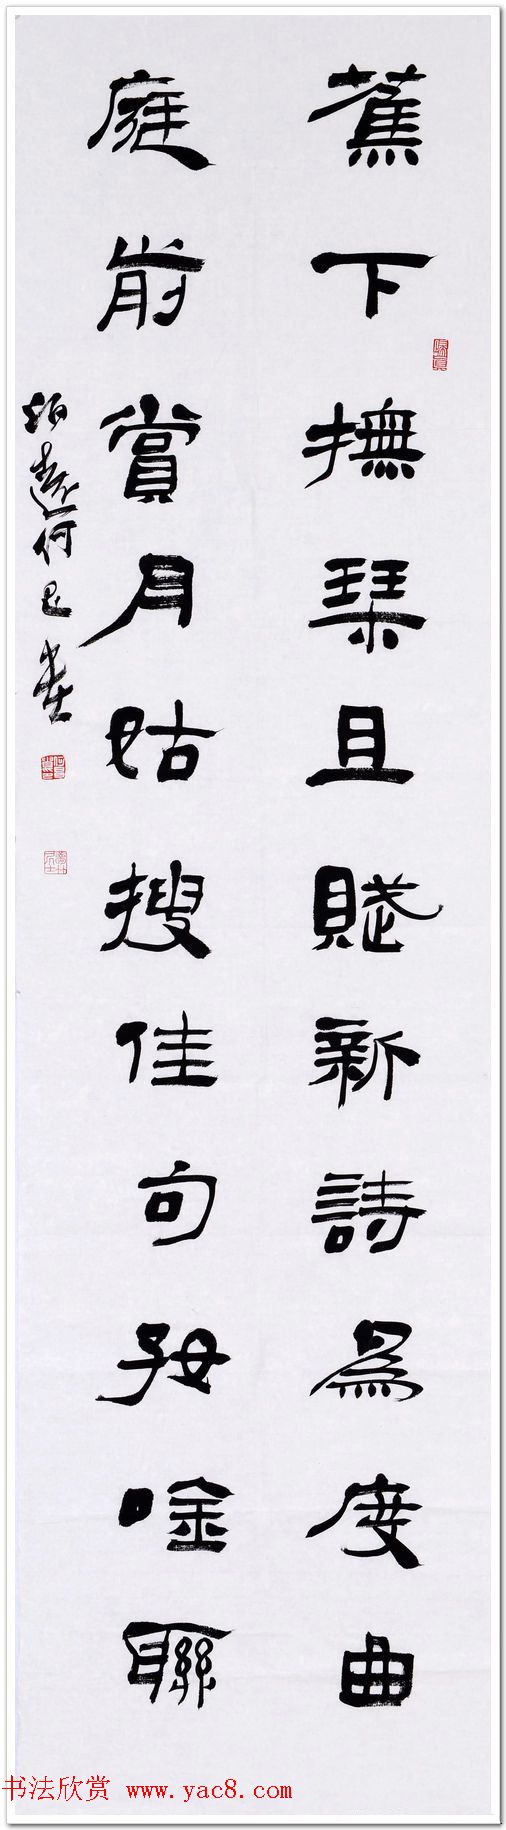 蕉下撫琹且賦新詩為度曲
庭前賞月姑搜佳句好唫聯
遠何書
书法欣赏 www.yac8.com